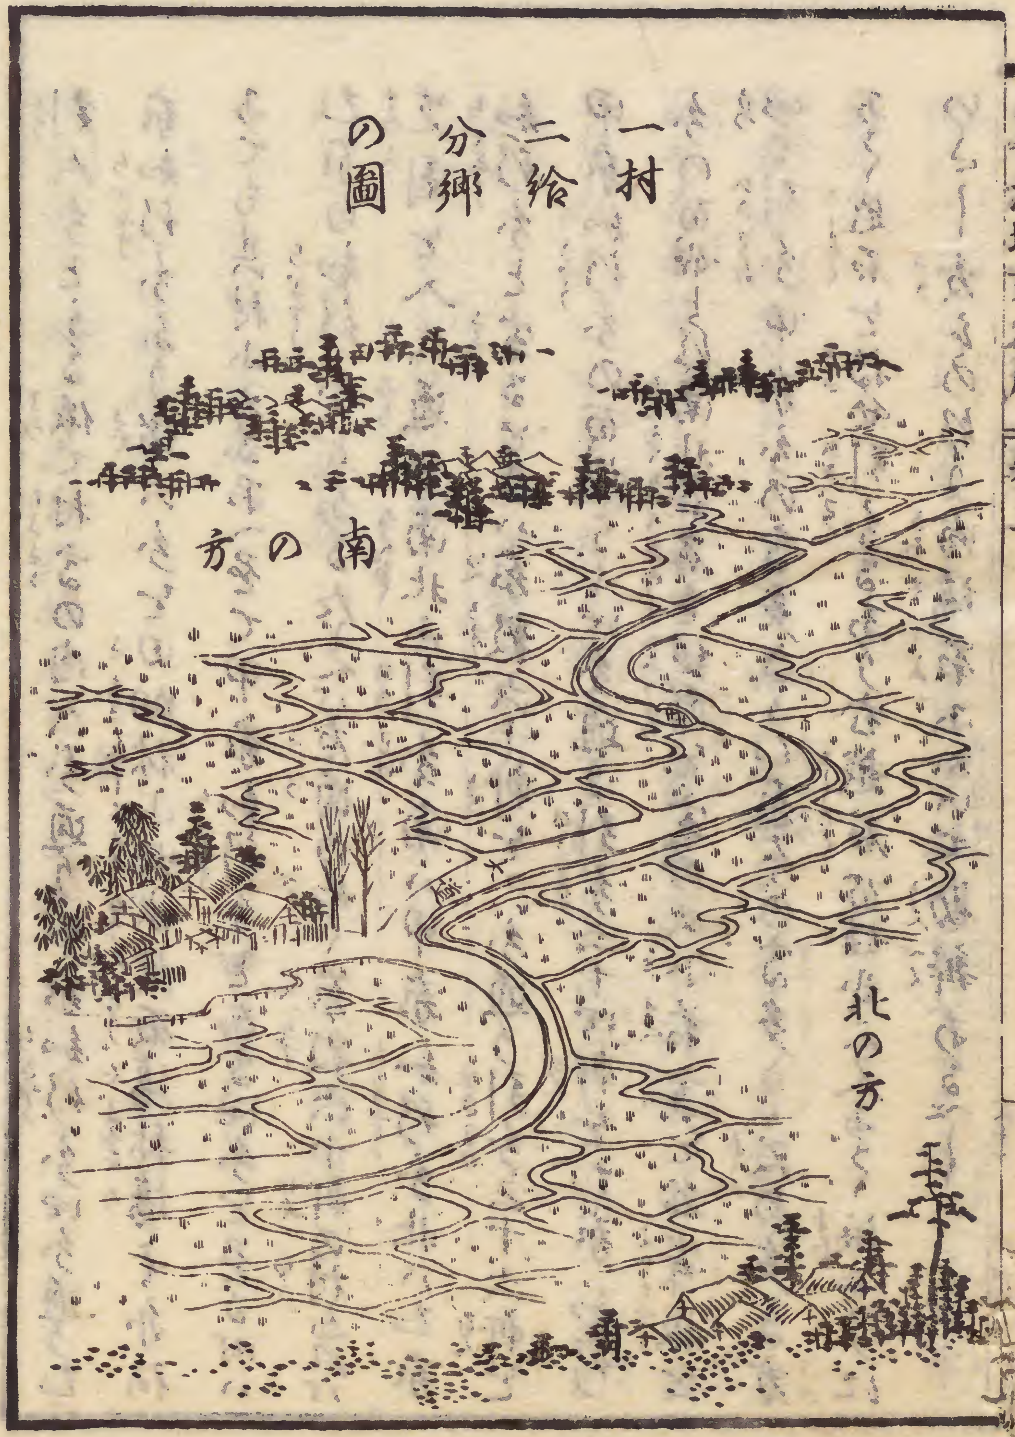 一村
二給
分郷
の圖
南の方
北の方